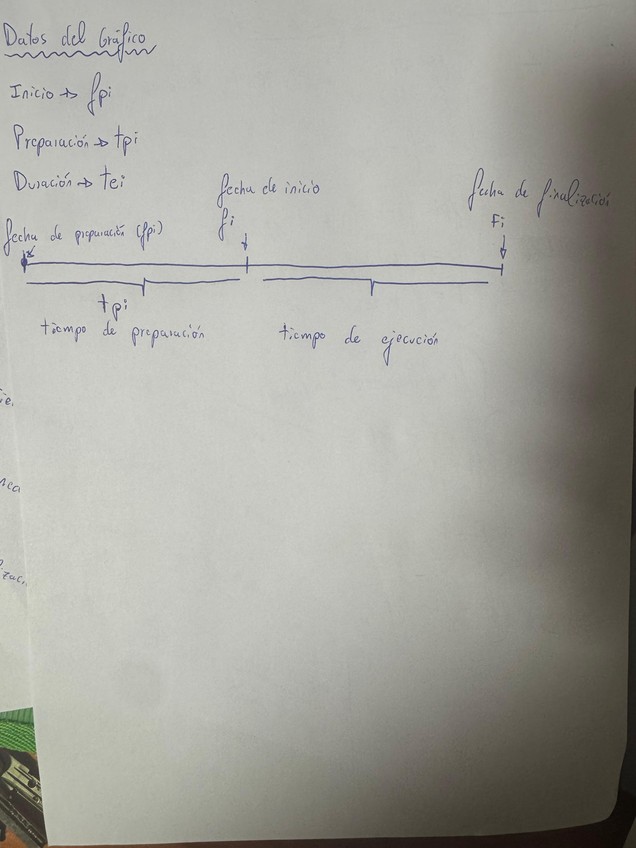 Datos del Gráfico
Inicio → fpi
Preparación → tpi
Duración → tei
fecha de inicio
fi
fecha de finalización
Fi
fecha de preparación (fpi)
tpi
tiempo de preparación
tiempo de ejecución